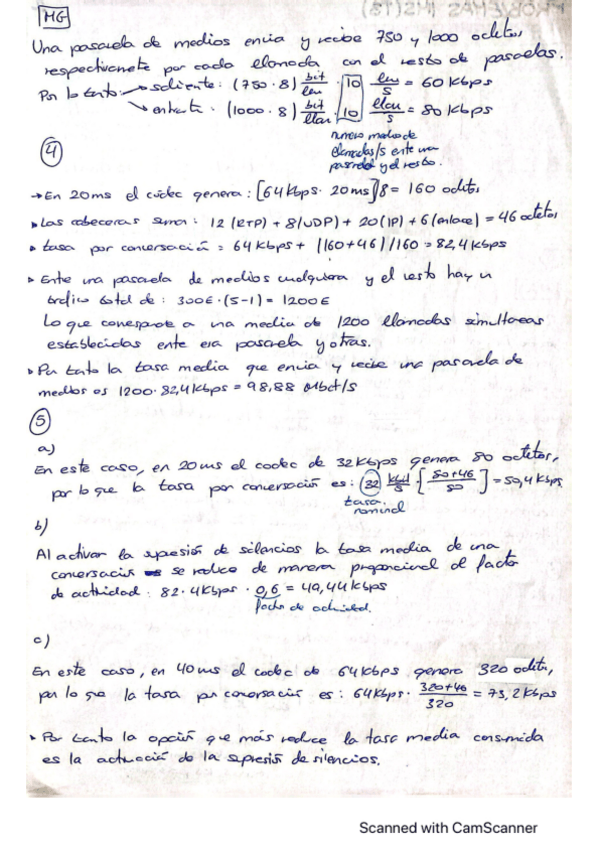 MG
Una pasarela de medios envia y recibe 750 y 1000 octetos
respectivamente por cada llamada con el resto de pasarelas.
Por lo tanto: → saliente: (750·8) bit/llam · 10 llam/s = 60 Kbps
→ entrante: (1000·8) bit/llam · 10 llam/s = 80 Kbps
numero medio de
llamadas/s ente una
pasarela y el resto.
4
→ En 20ms el codec genera: [64 Kbps· 20 ms]/8 = 160 octetos
▸ Las cabeceras suma: 12 (RTP) + 8(UDP) + 20(IP) + 6(enlace) = 46 octetos
▸ tasa por conversación = 64 Kbps + (160+46)/160 = 82,4 Kbps
▸ Ente una pasarela de medios cualquiera y el resto hay un
tráfico total de: 300E·(5-1) = 1200E
Lo que corresponde a una media de 1200 llamadas simultaneas
establecidas ente esa pasarela y otras.
▸ Por tanto la tasa media que envia y recibe una pasarela de
medios es 1200·82,4 Kbps = 98,88 Mbit/s
5
a)
En este caso, en 20ms el codec de 32 Kbps genera 80 octetos,
por lo que la tasa por conversación es: 32 kbit/s · [80+46/80] = 50,4 Kbps
tasa
nominal
b)
Al activar la supresión de silencios la tasa media de una
conversación se reduce de manera proporcional al factor
de actividad: 82.4 Kbps · 0,6 = 49,44 Kbps
factor de actividad.
c)
En este caso, en 40ms el codec de 64 Kbps genera 320 octetos,
por lo que la tasa por conversación es: 64 Kbps · 320+46/320 = 73,2 Kbps
▸ Por tanto la opción que más reduce la tasa media consumida
es la activación de la supresión de silencios.
Scanned with CamScanner